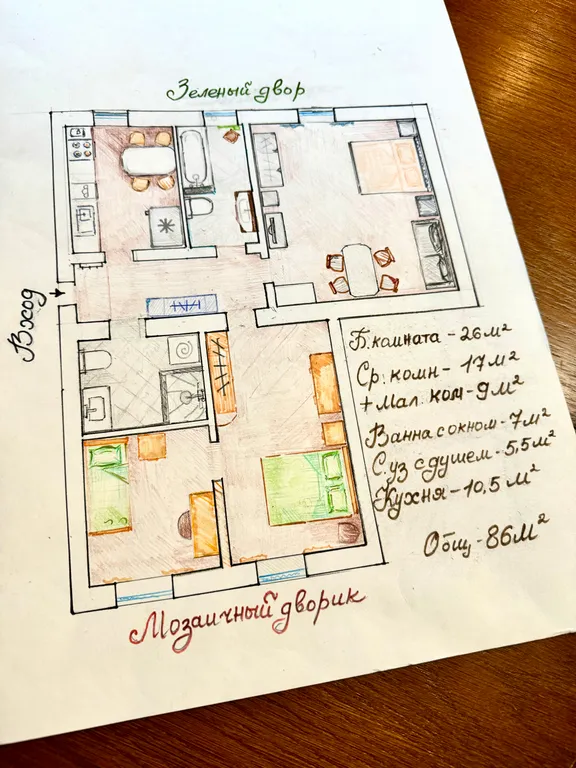 Зеленый двор
Вход
Б.комната - 26 м²
Ср. комн - 17 м²
+ Мал. ком - 9 м²
Ванна с окном - 7 м²
С.уз с душем - 5,5 м²
Кухня - 10,5 м²
Общ - 86 м²
Мозаичный дворик